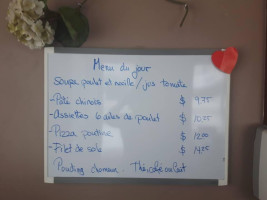 Menu du jour
Soupe poulet et nouille / jus tomate
- Pâté chinois $ 9.75
- Assiettes 6 ailes de poulet $ 10.25
- Pizza poutine $ 12.00
- Filet de sole $ 14.25
Pouding chomeur. Thé, café